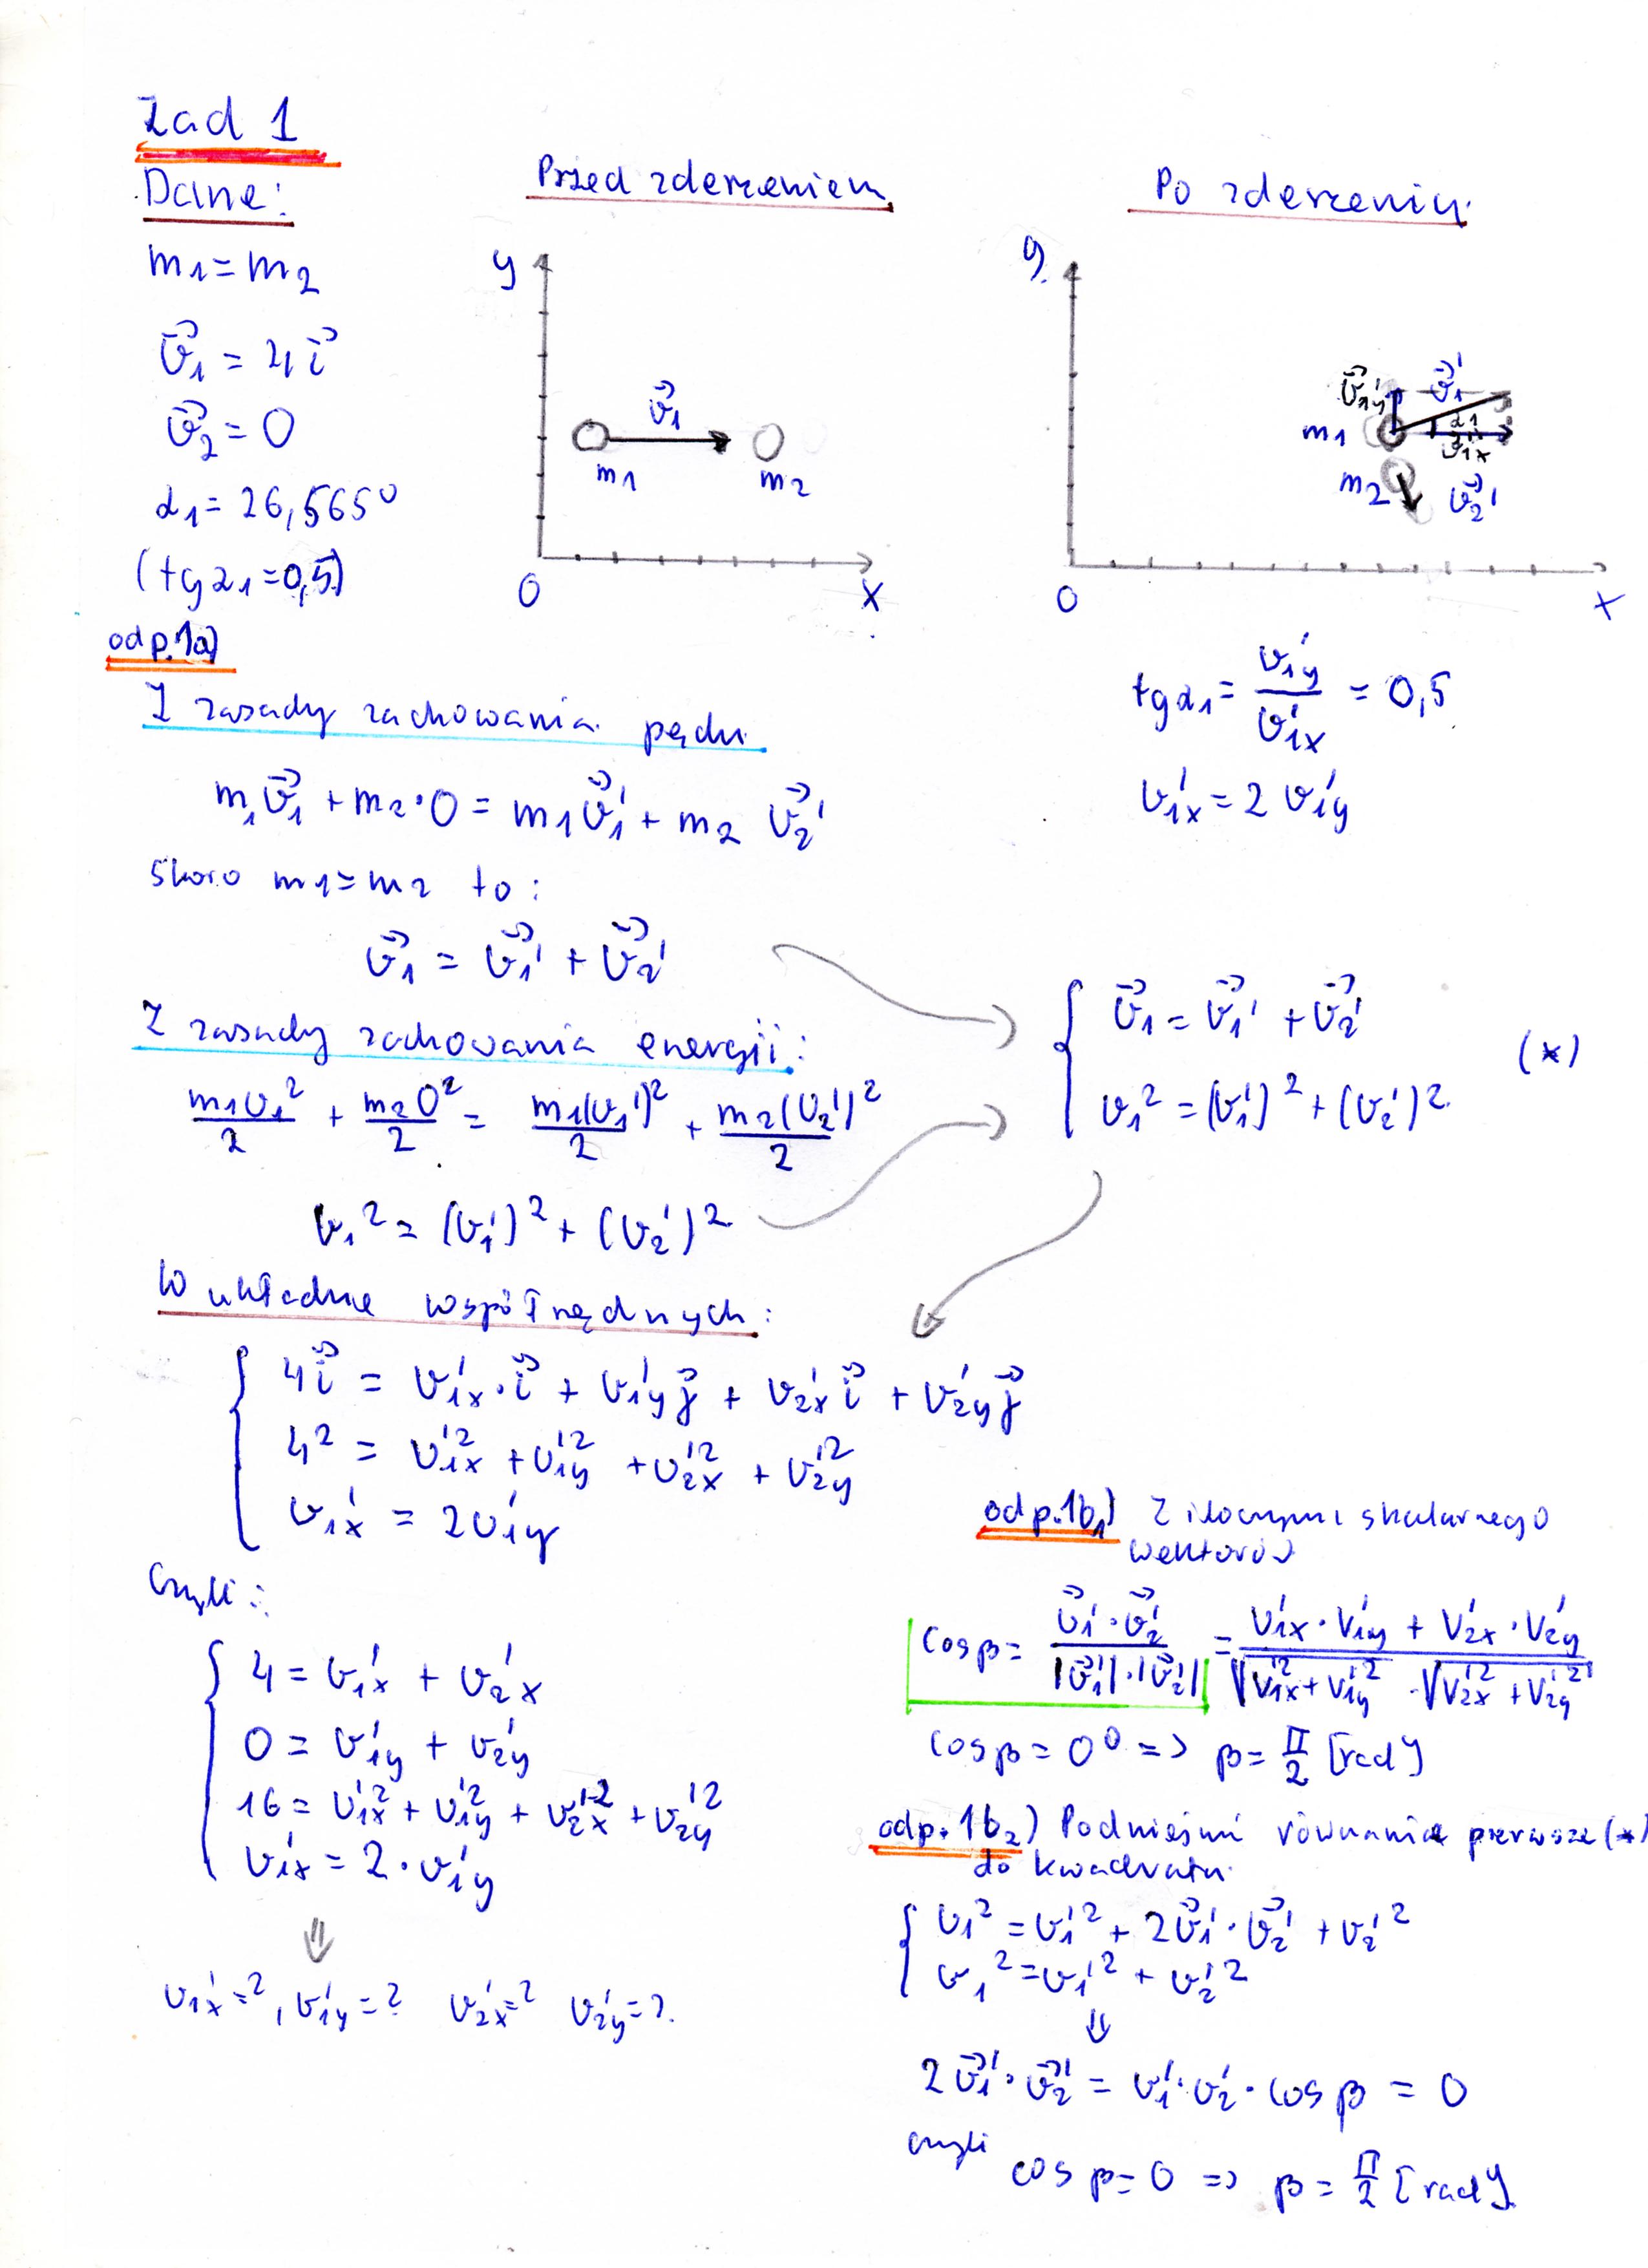 Zad 1
Dane:
m₁ = m₂
v⃗₁ = 4 i⃗
v⃗₂ = 0
α₁ = 26,565°
(tg α₁ = 0,5)
Przed zderzeniem
y
v⃗₁
m₁
m₂
0
x
Po zderzeniu
y
v⃗₁y'
v⃗₁'
α₁
m₁
v₁x'
m₂
v⃗₂'
0
x
tg α₁ = v₁y' / v₁x' = 0,5
v₁x' = 2 v₁y'
odp. 1a)
Z zasady zachowania pędu
m₁v⃗₁ + m₂·0 = m₁v⃗₁' + m₂ v⃗₂'
Skoro m₁ = m₂ to:
v⃗₁ = v⃗₁' + v⃗₂'
Z zasady zachowania energii:
m₁v₁²/2 + m₂0²/2 = m₁(v₁')²/2 + m₂(v₂')²/2
v₁² = (v₁')² + (v₂')²
{ v⃗₁ = v⃗₁' + v⃗₂'
v₁² = (v₁')² + (v₂')²
(*)
W układzie współrzędnych:
{ 4i⃗ = v₁x'·i⃗ + v₁y' j⃗ + v₂x' i⃗ + v₂y' j⃗
4² = v₁x'² + v₁y'² + v₂x'² + v₂y'²
v₁x' = 2v₁y'
czyli:
{ 4 = v₁x' + v₂x'
0 = v₁y' + v₂y'
16 = v₁x'² + v₁y'² + v₂x'² + v₂y'²
v₁x' = 2·v₁y'
⇓
v₁x' = ?, v₁y' = ? v₂x' = ? v₂y' = ?
odp. 1b₁) Z iloczynu skalarnego
wektorów
cos β = v⃗₁'·v⃗₂' / |v⃗₁'|·|v⃗₂'| = v₁x'·v₁y' + v₂x'·v₂y' / √(v₁x'² + v₁y'²) · √(v₂x'² + v₂y'²)
cos β = 0⁰ => β = Π/2 [rad]
odp. 1b₂) Podnieśmy równanie pierwsze (*)
do kwadratu
{ v₁² = v₁'² + 2v⃗₁'·v⃗₂' + v₂'²
v₁² = v₁'² + v₂'²
⇓
2v⃗₁'·v⃗₂' = v₁'·v₂'·cos β = 0
czyli
cos β = 0 => β = Π/2 [rad]